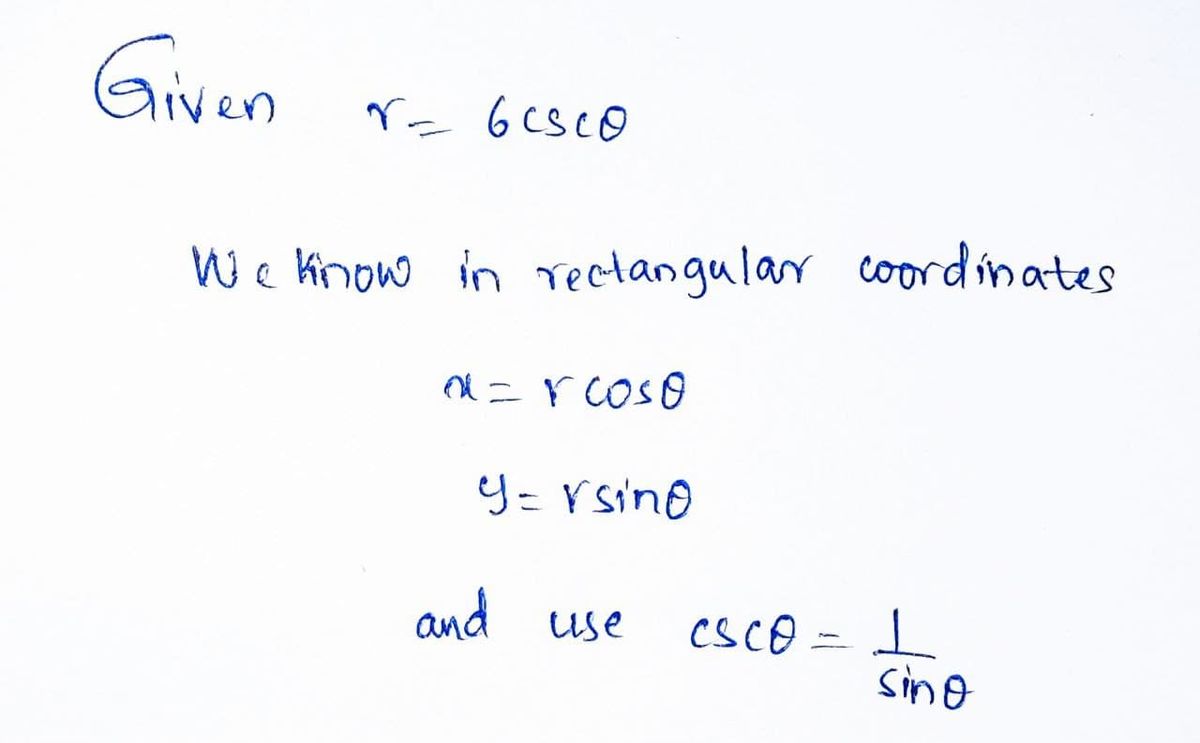 Given r = 6cscθ
We know in rectangular coordinates
x = rcosθ
y = rsinθ
and use cscθ = 1/sinθ